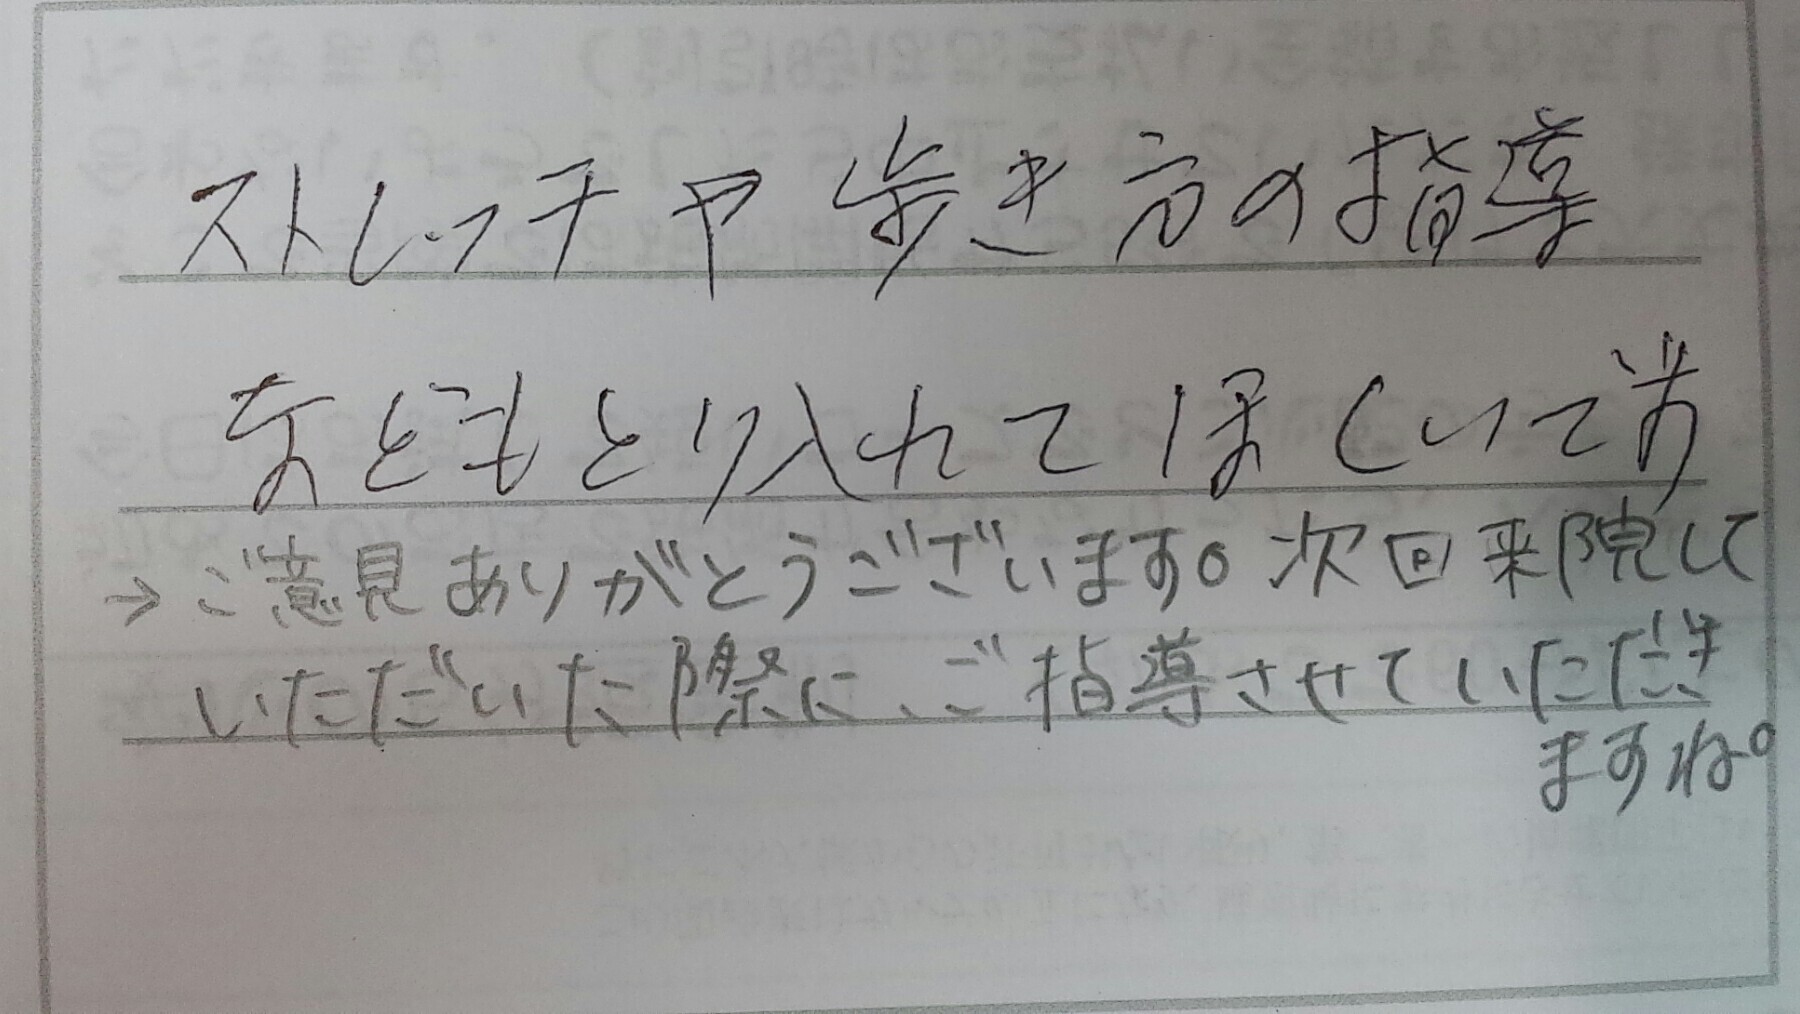 ストレッチや歩き方の指導
などもとり入れてほしいです
→ご意見ありがとうございます。次回来院して
いただいた際に、ご指導させていただき
ますね。